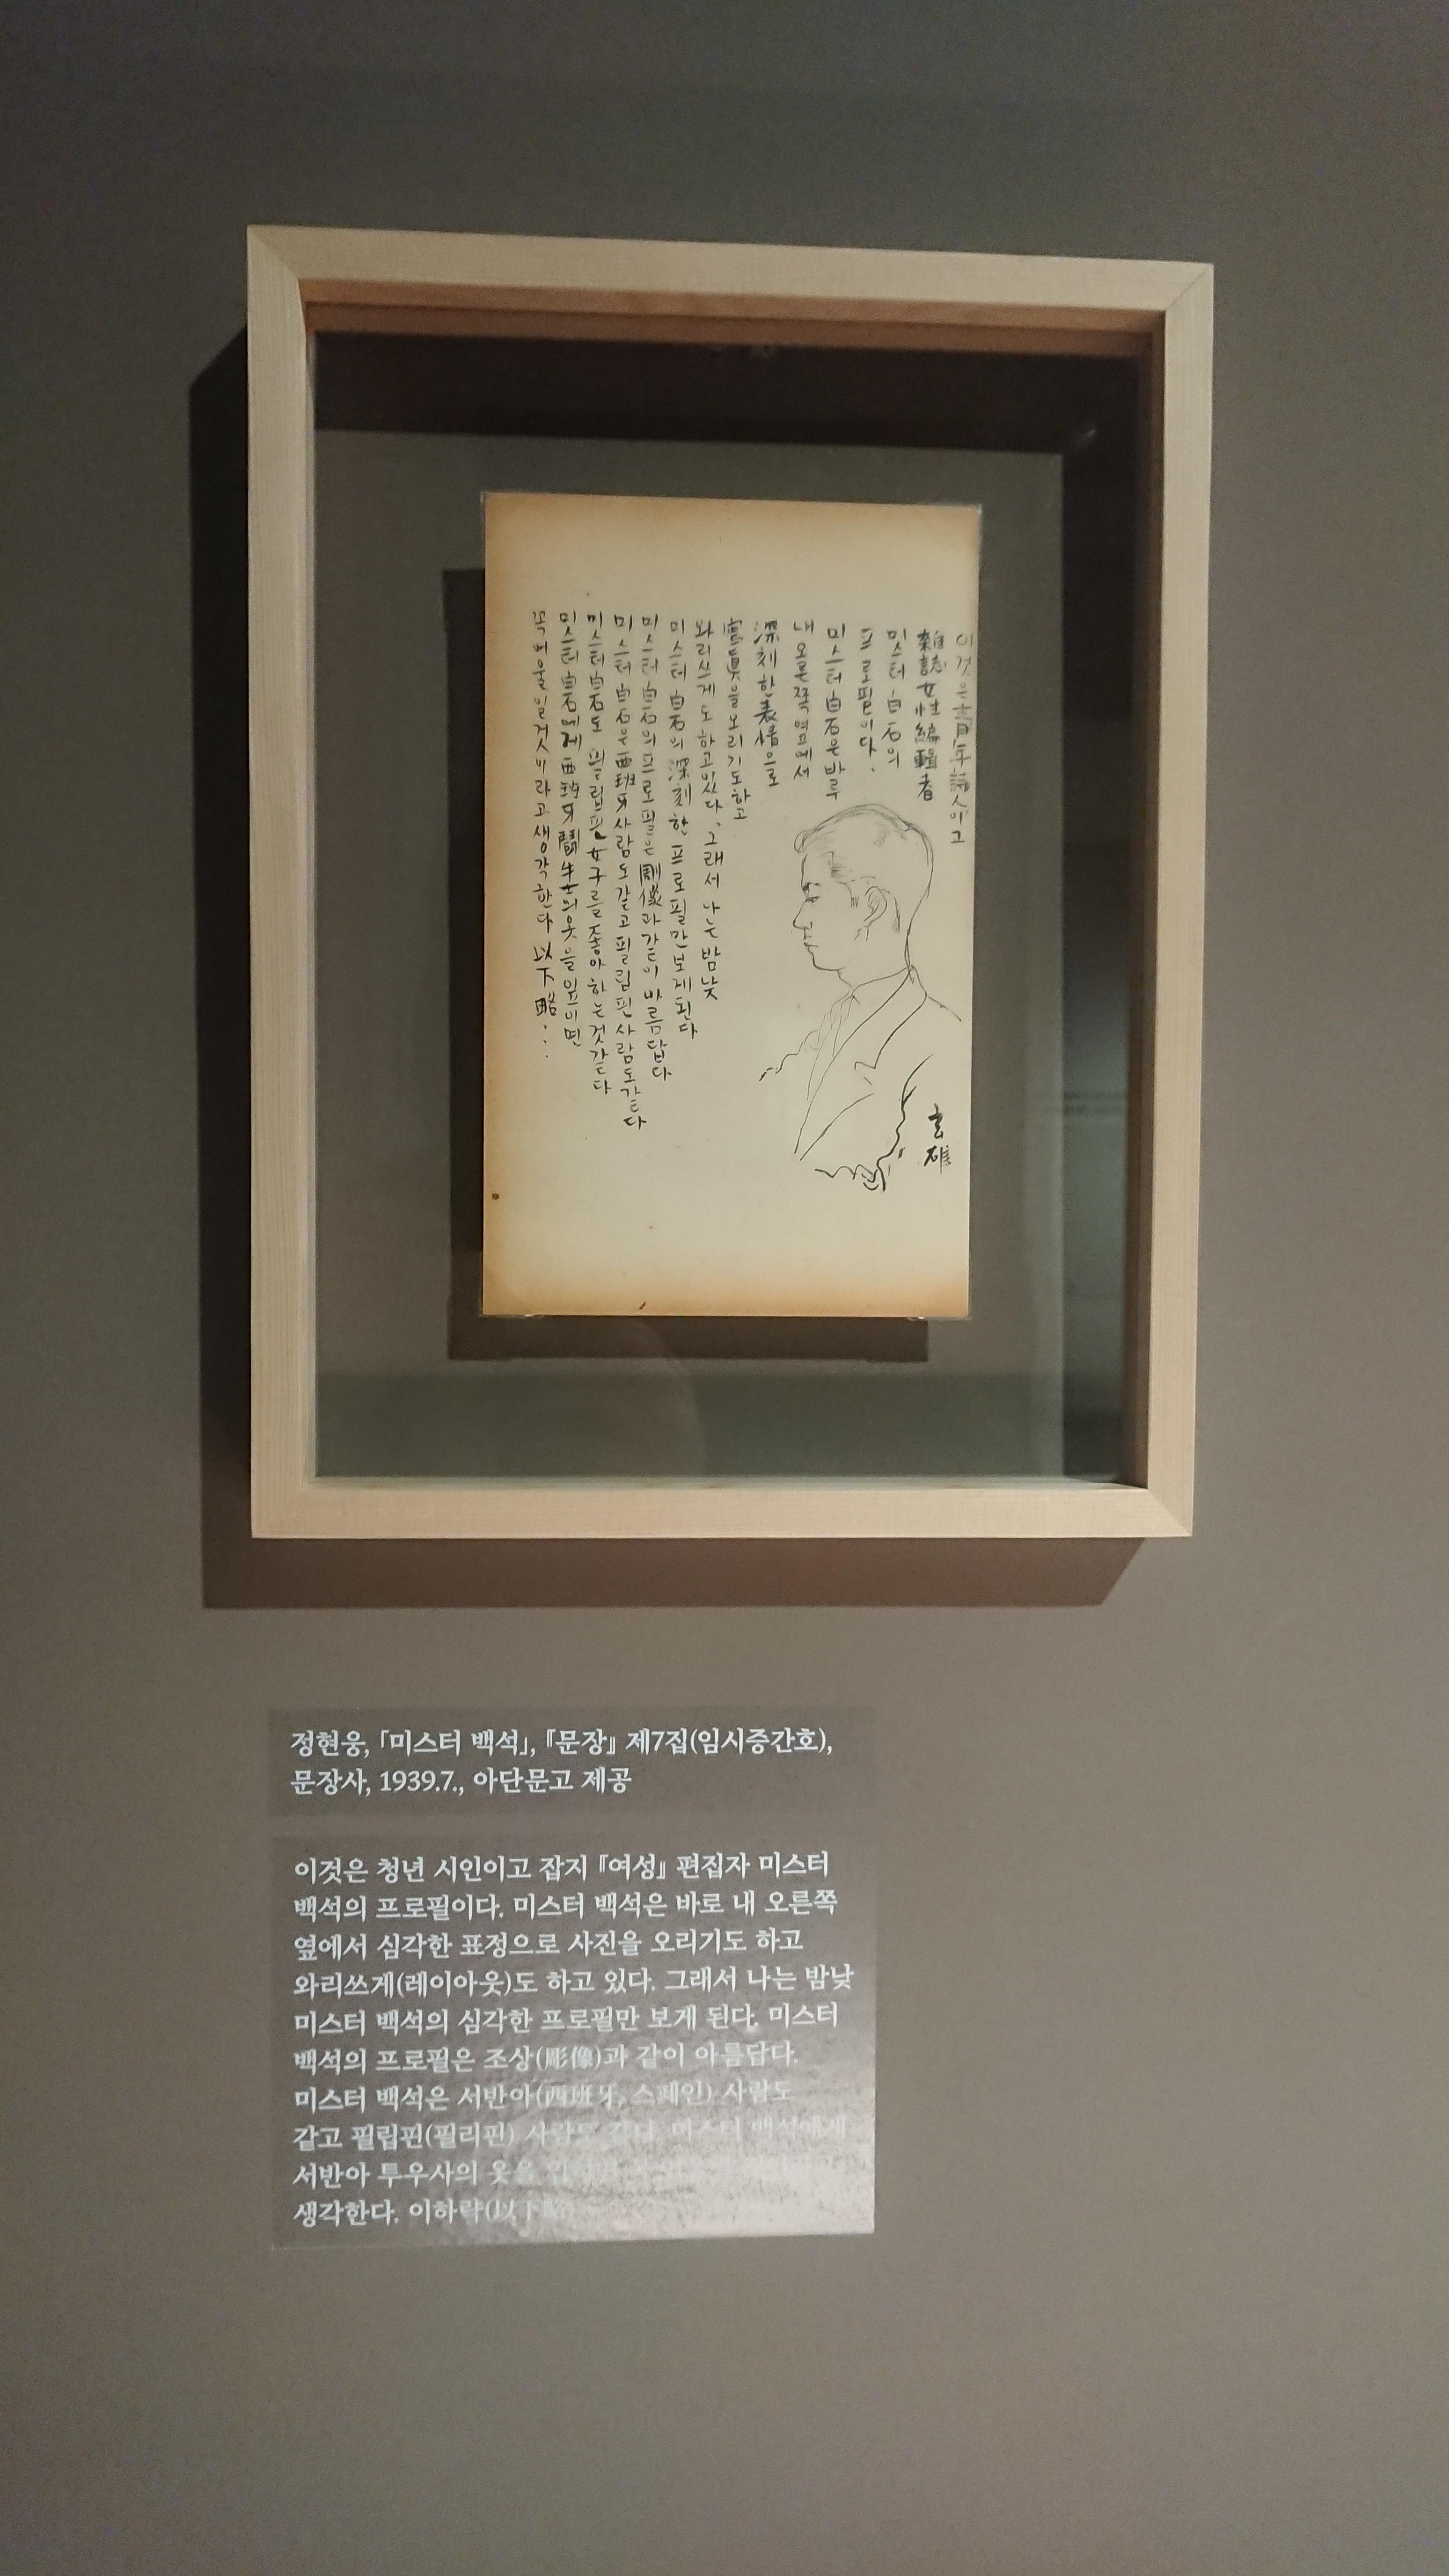 이것은靑年詩人이고
雜誌女性編輯者
미스터 白石의
프로필이다.
미스터 白石은바루
내 오른쪽 옆에서
深刻한表情으로
寫眞을오리기도하고
와리쓰게도 하고있다. 그래서 나는 밤낮
미스터 白石의 深刻한 프로필만 보게된다
미스터 白石의프로필은 彫像과같이 아름답다
미스터 白石은西班牙사람도 같고 필립핀사람도같다
미스터 白石도 필립핀女子를 좋아하는것같다
미스터 白石에게 西班牙鬪牛士의옷을 입히면
꼭 어울일것이라고 생각한다 以下略...
玄雄
정현웅, 「미스터 백석」, 『문장』 제7집(임시증간호),
문장사, 1939.7., 아단문고 제공
이것은 청년 시인이고 잡지 『여성』 편집자 미스터
백석의 프로필이다. 미스터 백석은 바로 내 오른쪽
옆에서 심각한 표정으로 사진을 오리기도 하고
와리쓰게(레이아웃)도 하고 있다. 그래서 나는 밤낮
미스터 백석의 심각한 프로필만 보게 된다. 미스터
백석의 프로필은 조상(彫像)과 같이 아름답다.
미스터 백석은 서반아(西班牙, 스페인) 사람도
같고 필립핀(필리핀) 사람도 같다. 미스터 백석에게
서반아 투우사의 옷을
생각한다. 이하략(以下略)